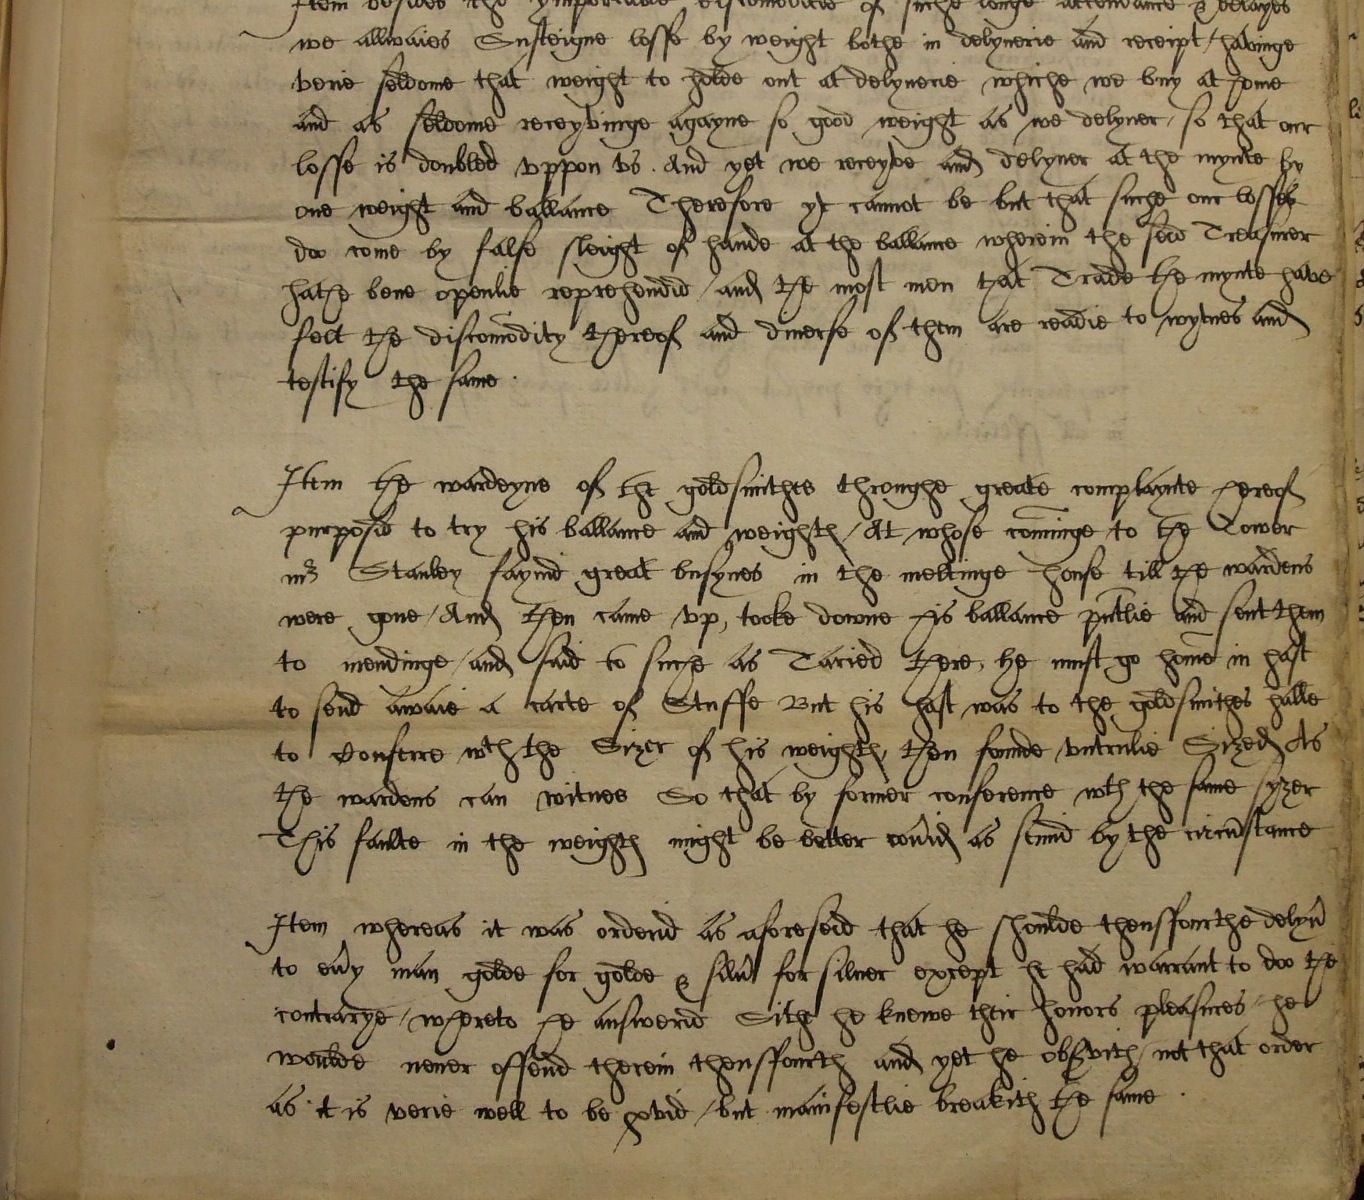 Item besides the ymportable discomoditie of suche longe attendance & delayes
we allwaies Susteigne losse by weight bothe in delyuerie and receipt / havinge
verie seldome that weight to holde out at delyuerie whiche we buy at home
and as seldome receyvinge agayne so good weight as we delyuer / so that our
losse is doubled vppon vs . And yet we receyve and delyuer at the mynte by
one weight and ballance Therefore yt cannot be but that suche our losses
doo come by false sleight of hande at the ballance wherein the said Treasurer
hathe bene openlie reprehendid / and the most men that Trade the mynte have
felt the discomodity thereof and diuerse of them are readie to wytnes and
testify the same .
Item the wardeyne of the goldsmithes throughe greate complaynte hereof
purposid to try his ballance and weight / At whose cominge to the Tower
mr Stanley faynid great busynes in the meltinge house till the wardens
were gone / And then came vp, tooke downe his ballance putlie and sent them
to mendinge / and said to suche as Taried there, he must go home in hast
to send awaie a carte of Stuffe But his hast was to the goldsmithes halle
to Conferre wth the Sizer of his weight, then founde vntrulie Sized As
the wardens can witnes So that by former conference wth the same syzer
This faulte in the weight might be better couid as semid by the circustance
Item whereas it was orderid as aforesaid that he shoulde thensffourthe delyu
to euy man golde for golde & silu for siluer except he had warrant to doo the
contrarye / whereto he answerid Sith he knewe their honors pleasures / he
woulde neuer offend therein thensffourth and yet he obseruith / not that order
as it is verie well to be provid / but manifestlie breakith the same .